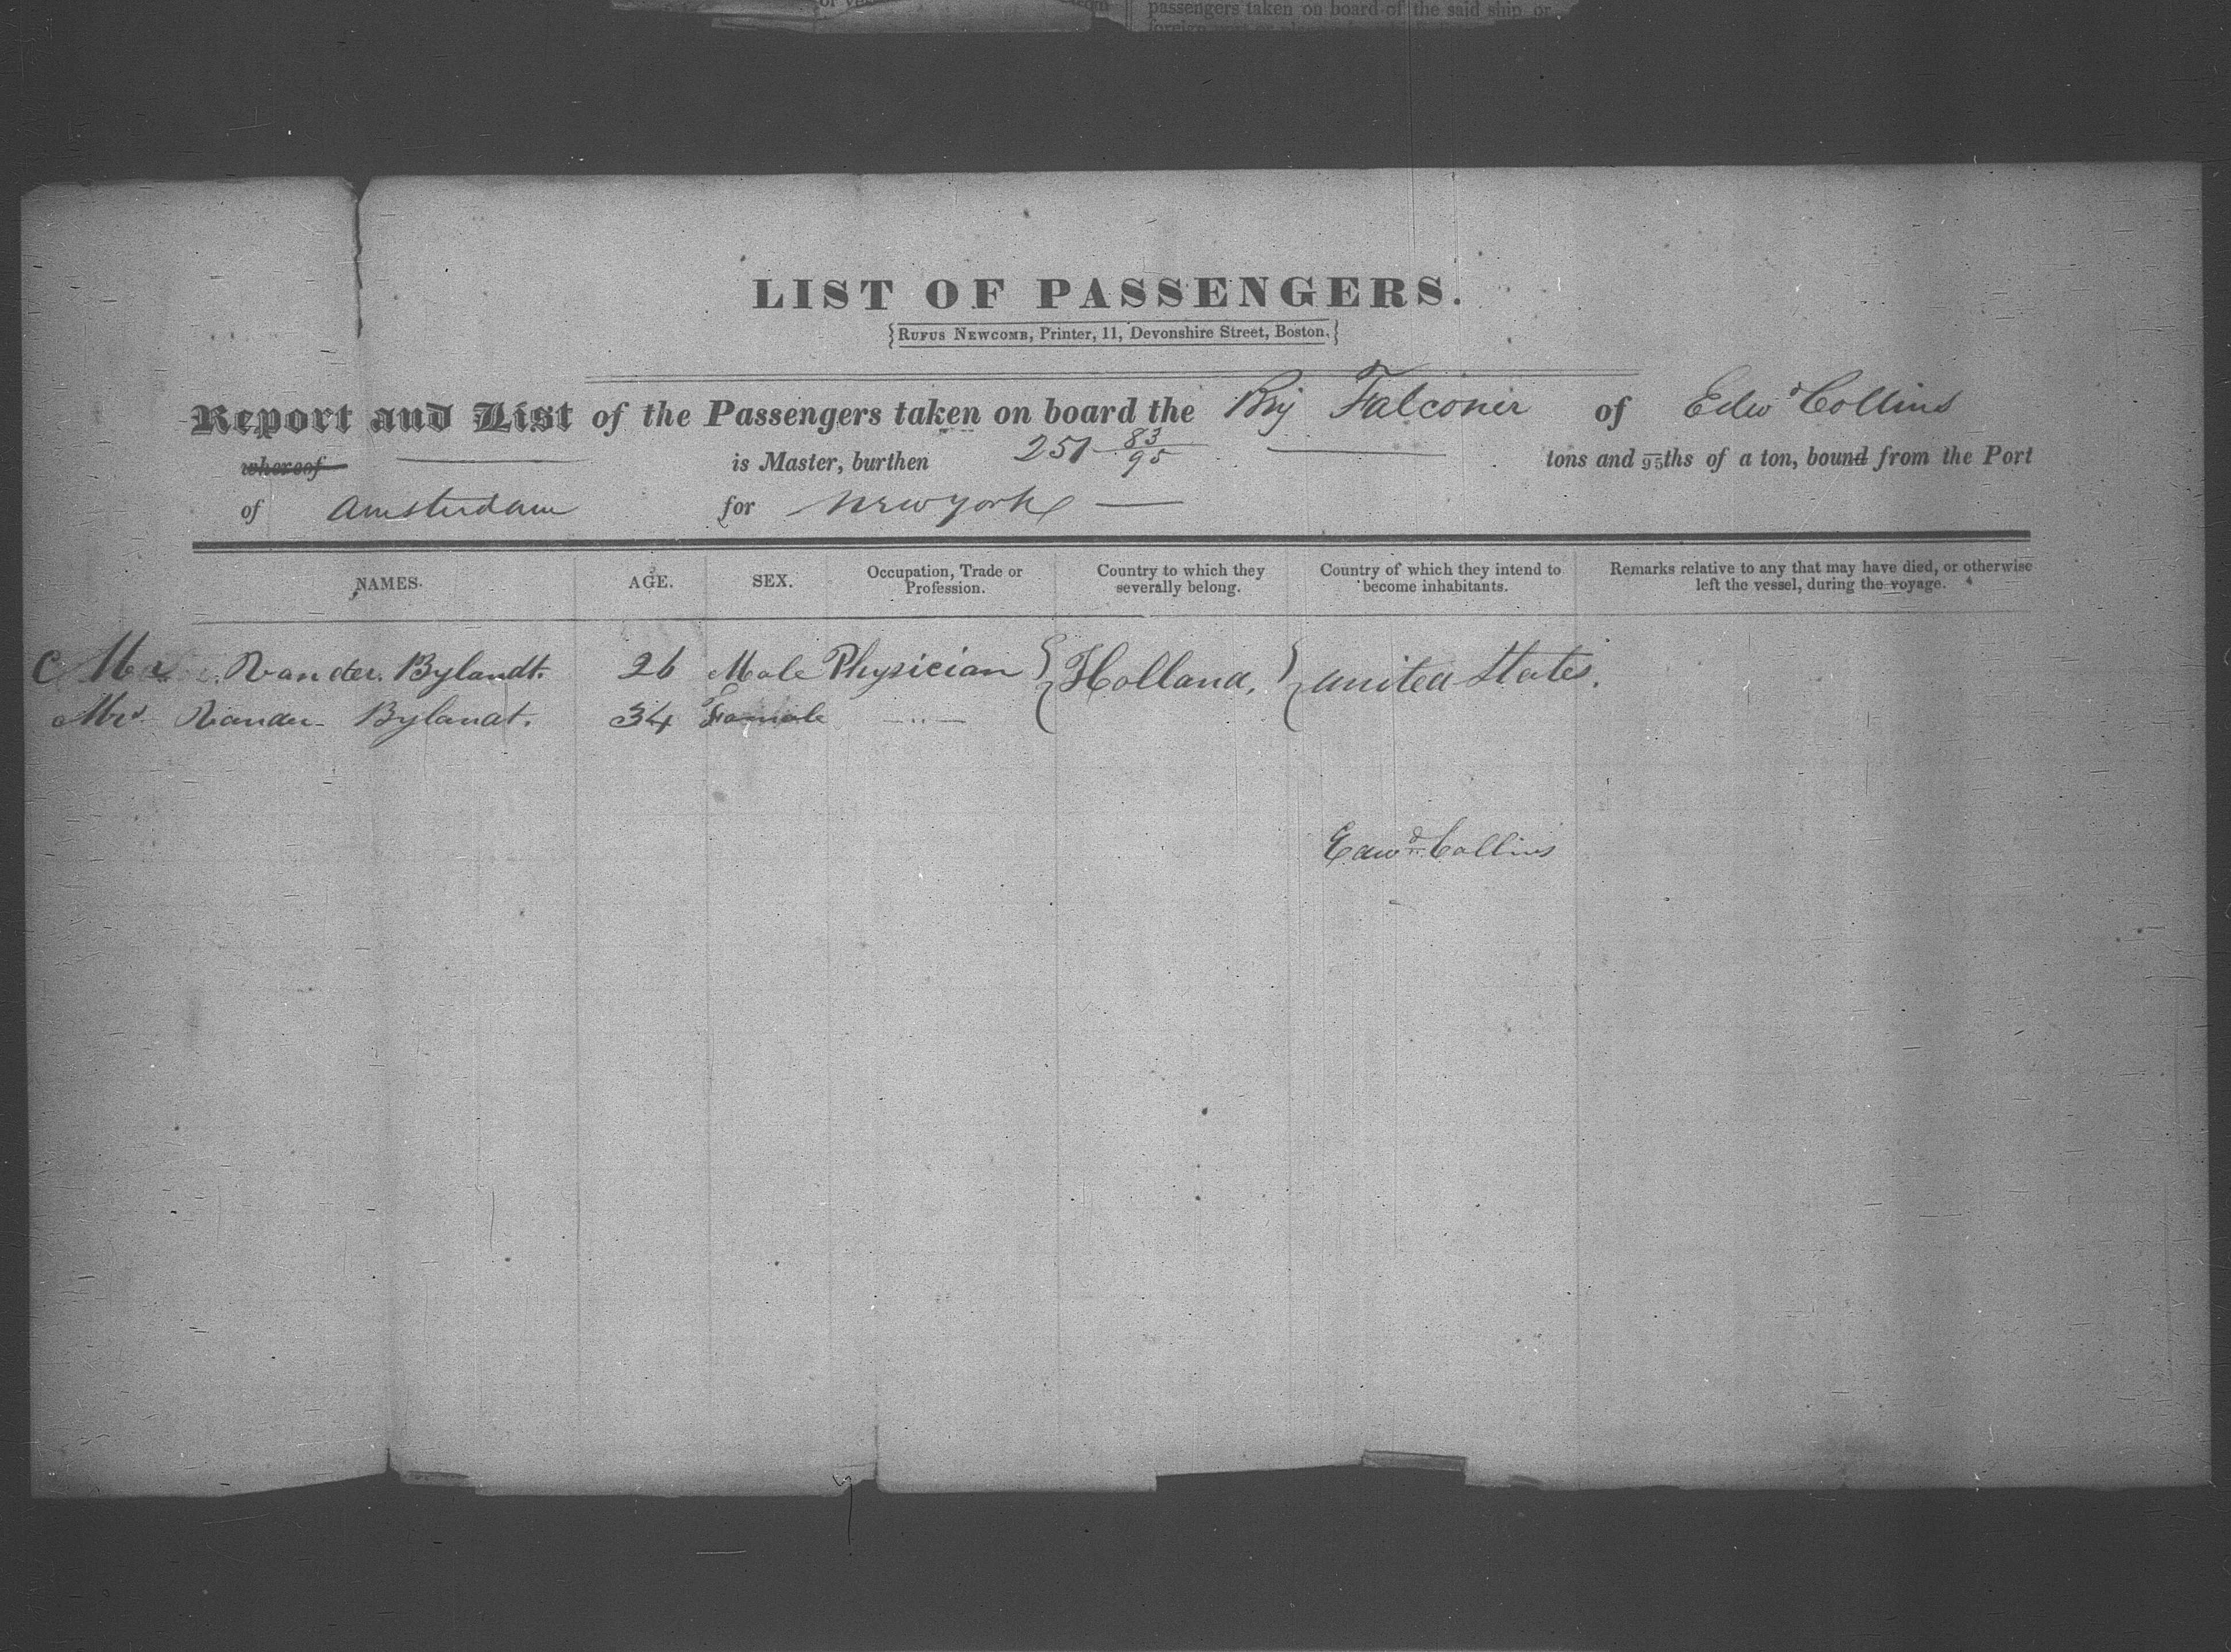 passengers taken on board of the said ship or
LIST OF PASSENGERS.
{RUFUS NEWCOMB, Printer, 11, Devonshire Street, Boston.}
Report and List of the Passengers taken on board the Brig Falconer of Edwd Collins
whereof is Master, burthen 251 83/95 tons and 95ths of a ton, bound from the Port
of Amsterdam for New york
NAMES. AGE. SEX. Occupation, Trade or Profession. Country to which they severally belong. Country of which they intend to become inhabitants. Remarks relative to any that may have died, or otherwise left the vessel, during the voyage.
Mr Vander Bylandt. 26 Male Physician } Holland, } United States.
Mrs Vander Bylandt. 34 Female
Edwd Collins